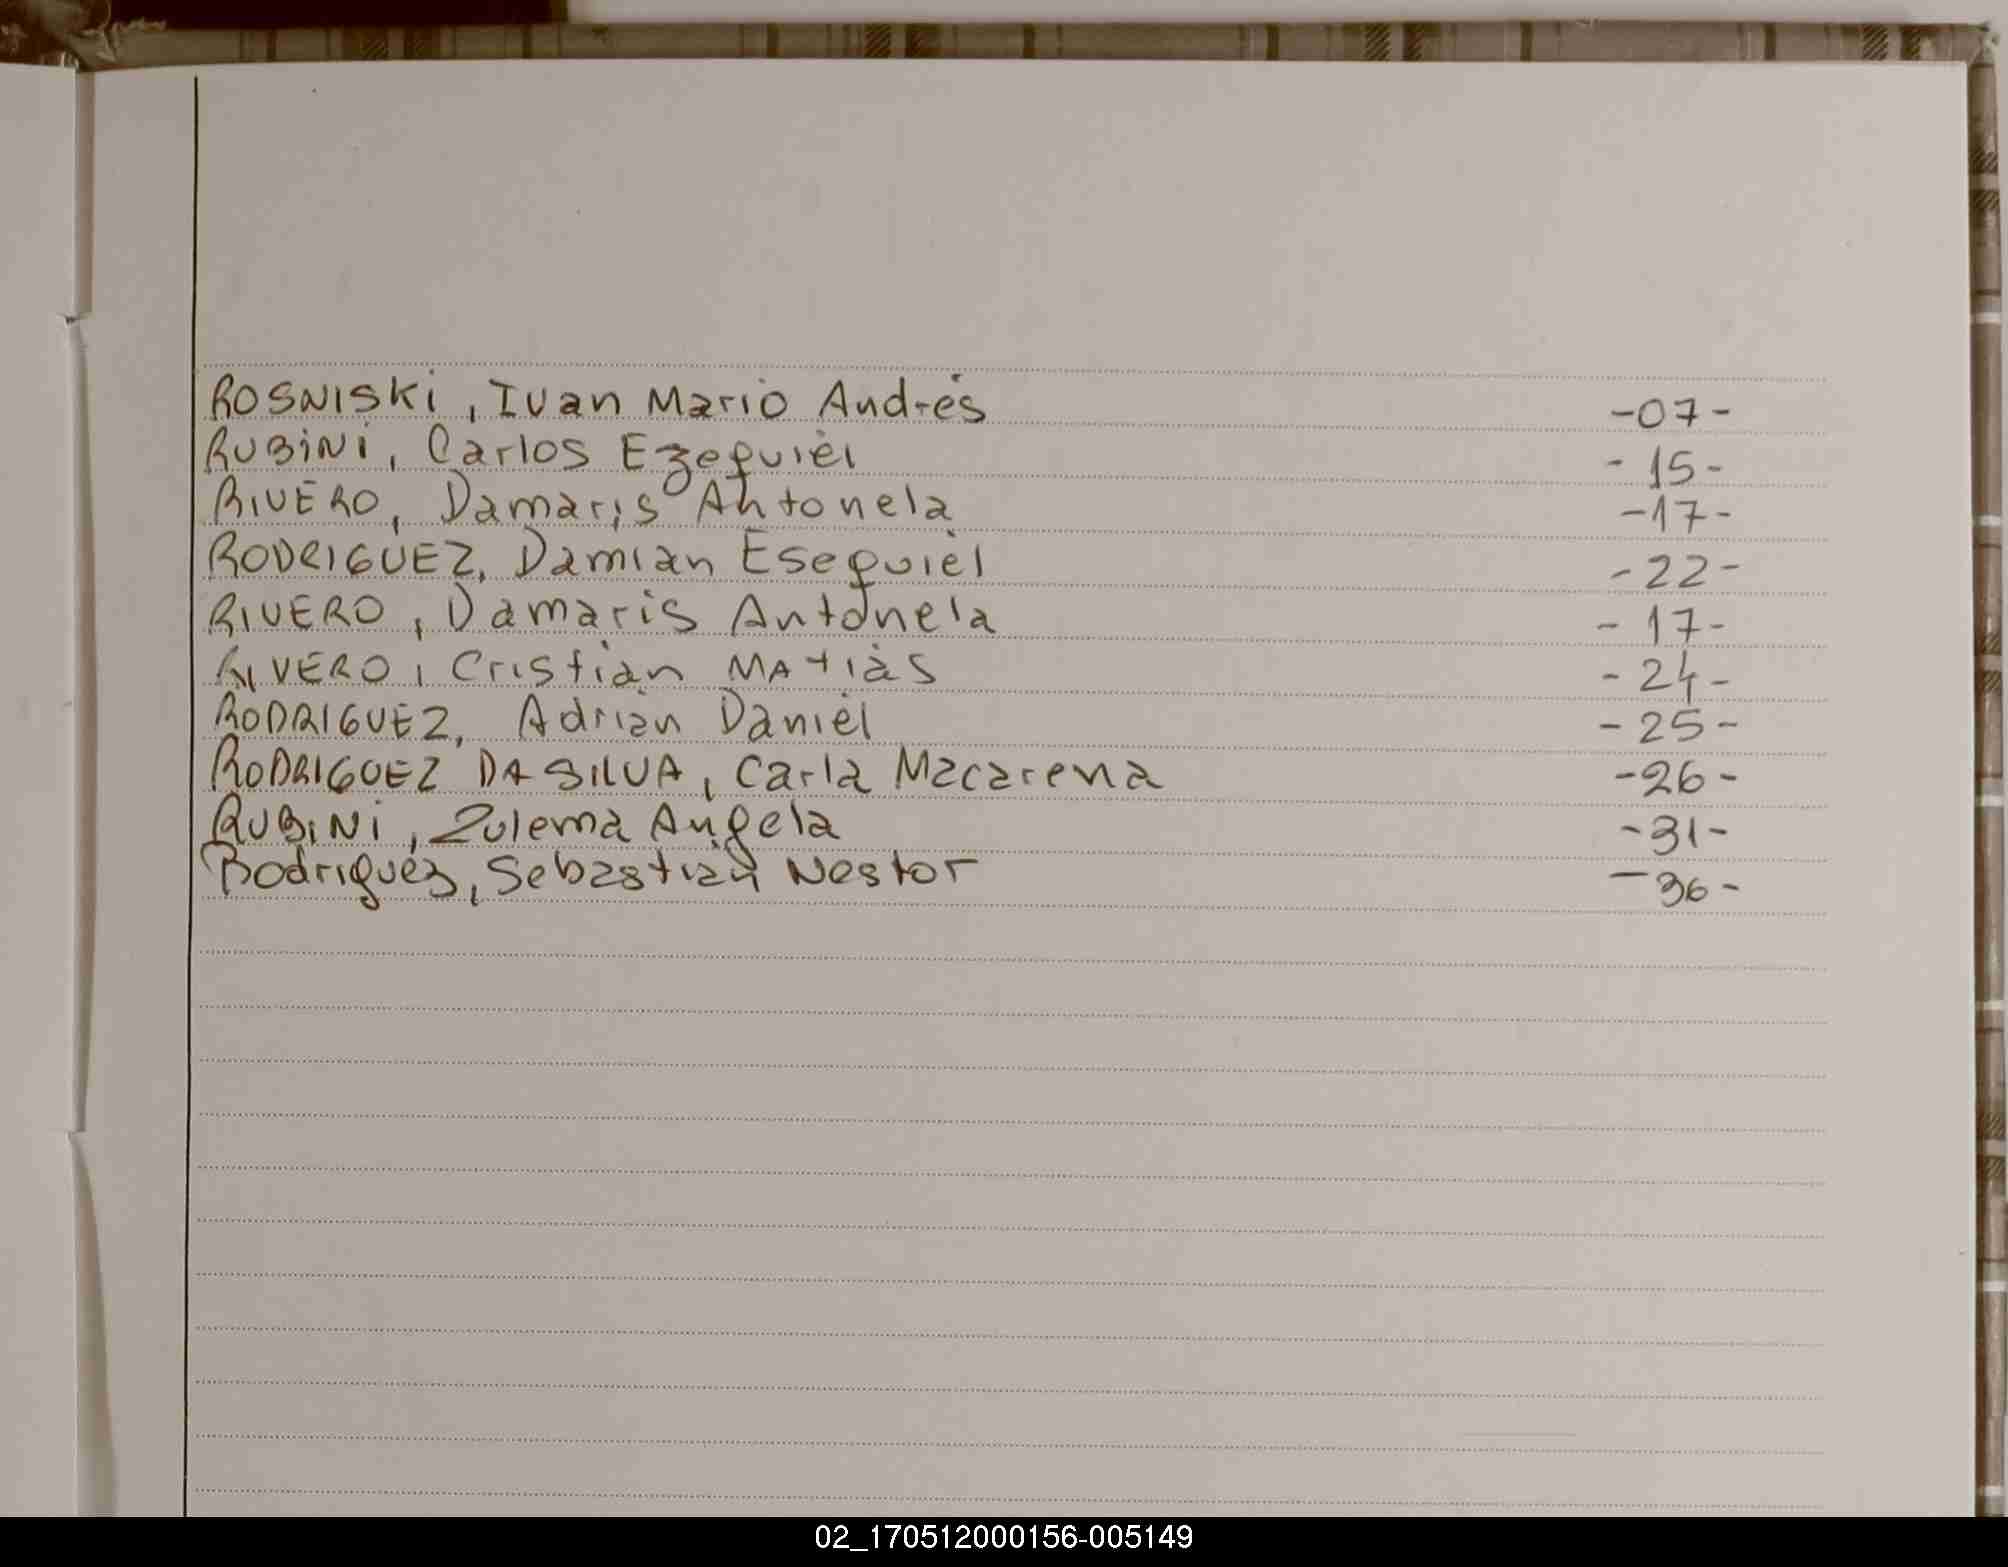 ROSNISKi, Ivan Mario Andrés -07-
RUBiNi, Carlos Ezequiel -15-
RIVERO, Damaris Antonela -17-
RODRIGUEZ, Damian Esequiel -22-
RIVERO, Damaris Antonela -17-
RIVERO, Cristian MAtias -24-
RODRIGUEZ, Adrian Daniel -25-
RODRIGUEZ DA SILVA, Carla Macarena -26-
RUBiNi, Zulema Angela -31-
Rodriguez, Sebastian Nestor -36-
02_170512000156-005149